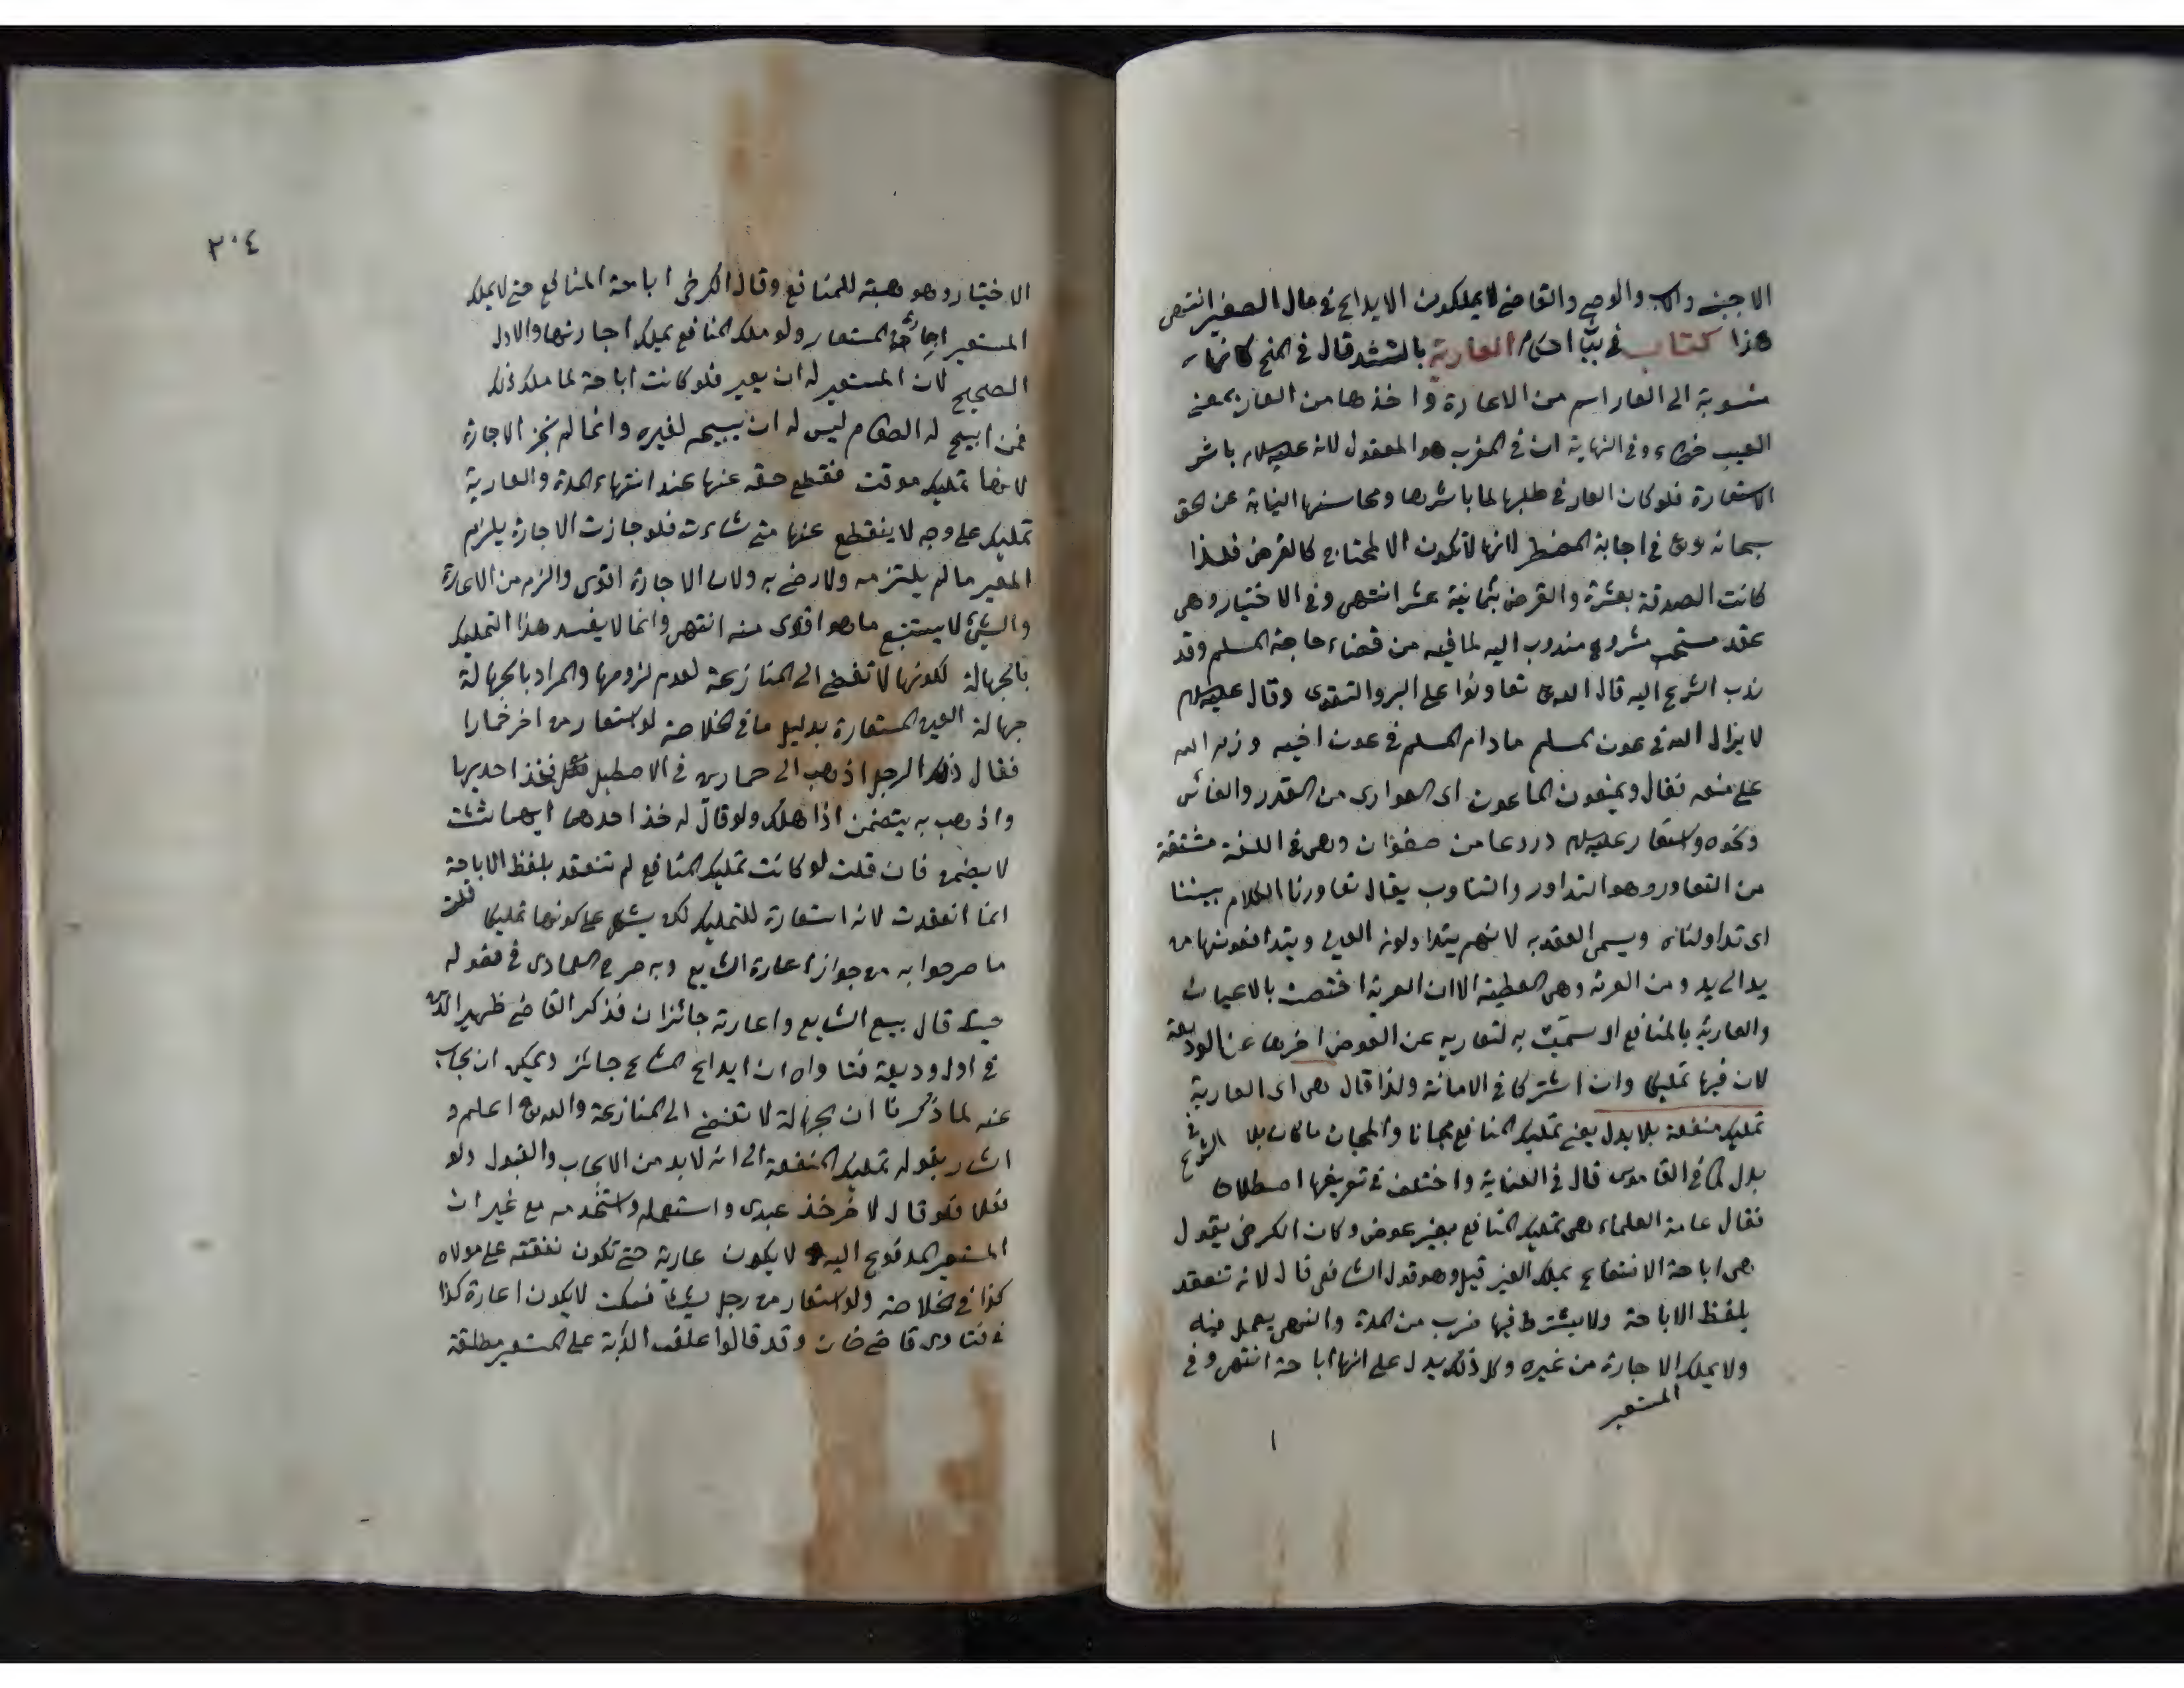 الاجنبي والاب والوصي والقاضي لا يملكون الايداع في مال الصغير انتهى
هذا كتاب في بيان احكام العارية بالتشديد قال في المنح كانها
منسوبة الى العار اسم من الاعارة واخذها من العار بمعنى
العيب خطاء وفي النهاية ان في المغرب هو المعقول لانه عليه السلام باشر
الاستعارة فلو كان العار في طلبها لما باشرها ومحاسنها النيابة عن الحق
سبحانه وتعالى في اجابة المضطر لانها لا تكون الا لمحتاج كالقرض فلذا
كانت الصدقة بعشرة والقرض بثمانية عشر انتهى وفي الاختيار وهي
عقد مستحب مشروع مندوب اليه لما فيه من قضاء حاجة المسلم وقد
ندب الشرع اليه قال الله تعالى تعاونوا على البر والتقوى وقال عليه السلام
لا يزال الله في عون المسلم مادام المسلم في عون اخيه وذم الله
على منعه فقال ويمنعون الماعون اى العوارى من القدر والفأس
ونحوه واستعار عليه السلام دروعا من صفوان وهي في اللغة مشتقة
من التعاور وهو التداور والتناوب يقال تعاورنا الكلام بيننا
اى تداولناه ويسمى العقد به لانهم يتداولونه العين ويتدافعونها من
يد الى يد ومن العرية وهي العطية الا ان العرية اختصت بالاعيان
والعارية بالمنافع او سميت به لتعاريه عن العوض اخرها عن الوديعة
لان فيها تمليكا وان اشتركا في الامانة ولذا قال هى اى العارية
تمليك منفعة بلا بدل يعني تمليك المنافع مجانا والمجان ما كان بلا
بدل كما في القاموس قال في العناية واختلف في تعريفها اصطلاحا في الشرع
فقال عامة العلماء هى تمليك المنافع بغير عوض وكان الكرخي يقول
هى اباحة الانتفاع بملك الغير قيل وهو قول الشافعي قال لانه تنعقد
بلفظ الاباحة ولا يشترط فيها ضرب من المدة والنهى يعمل فيه
ولا يملك الاجارة من غيره وكل ذلك يدل على انها اباحة انتهى وفي
المستعير
٣٠٤
الاختيار وهو هبة للمنافع وقال الكرخى اباحة المنافع حتى لا يملك
المستعير اجارة المستعار ولو ملك المنافع يملك اجارتها والاول
الصحيح لان المستعير له ان يعير فلو كانت اباحة لما ملك ذلك
فمن ابيح له الطعام ليس له ان يبيحه لغيره وانما لم تجز الاجارة
لانها تمليك موقت فقطع حقه عنها عند انتهاء المدة والعارية
تمليك على وجه لا ينقطع عنها متى شاءت فلو جازت الاجارة يلزم
المعير ما لم يلتزمه ولا رضى به ولان الاجارة اقوى والزم من الاعارة
والشئ لا يستتبع ما هو اقوى منه انتهى وانما لا يفسد هذا التمليك
بالجهالة لكونها لا تفضي الى المنازعة لعدم لزومها والمراد بالجهالة
جهالة العين المستعارة بدليل ما في الخلاصة لو استعار من اخر حمارا
فقال ذلك الرجل اذهب الى حمارين في الاصطبل فخذ احديهما
واذهب به يتضمن اذا هلك ولو قال له خذ احدهما ايهما شئت
لا يضمن فان قلت لو كانت تمليك المنافع لم تنعقد بلفظ الاباحة قلت
انما انعقدت لانه استعارة للتمليك لكن يشكل على كونها تمليكا
ما صرحوا به من جواز اعارة الشايع وبه صرح العمادى في فصوله
حيث قال بيع الشايع واعارته جائزان فذكر القاضي ظهير الدين
في اول وديعة فتاواه ان ايداع المشاع جائز ويمكن ان يجاب
عنه لما ذكرنا ان الجهالة لا تفضي الى المنازعة والله تعالى اعلم و
اشار بقوله تمليك المنفعة الى انه لا بد من الايجاب والقبول ولو
فعلا فلو قال لاخر خذ عبدى واستعمله واستخدمه مع غير ان
المستعير المدفوع اليه لا يكون عارية حتى تكون نفقته على مولاه
كذا في الخلاصة ولو استعار من رجل شيئا فسكت لا يكون اعارة كذا
في فتاوى قاضي خان وقد قالوا علف الدابة على المستعير مطلقة